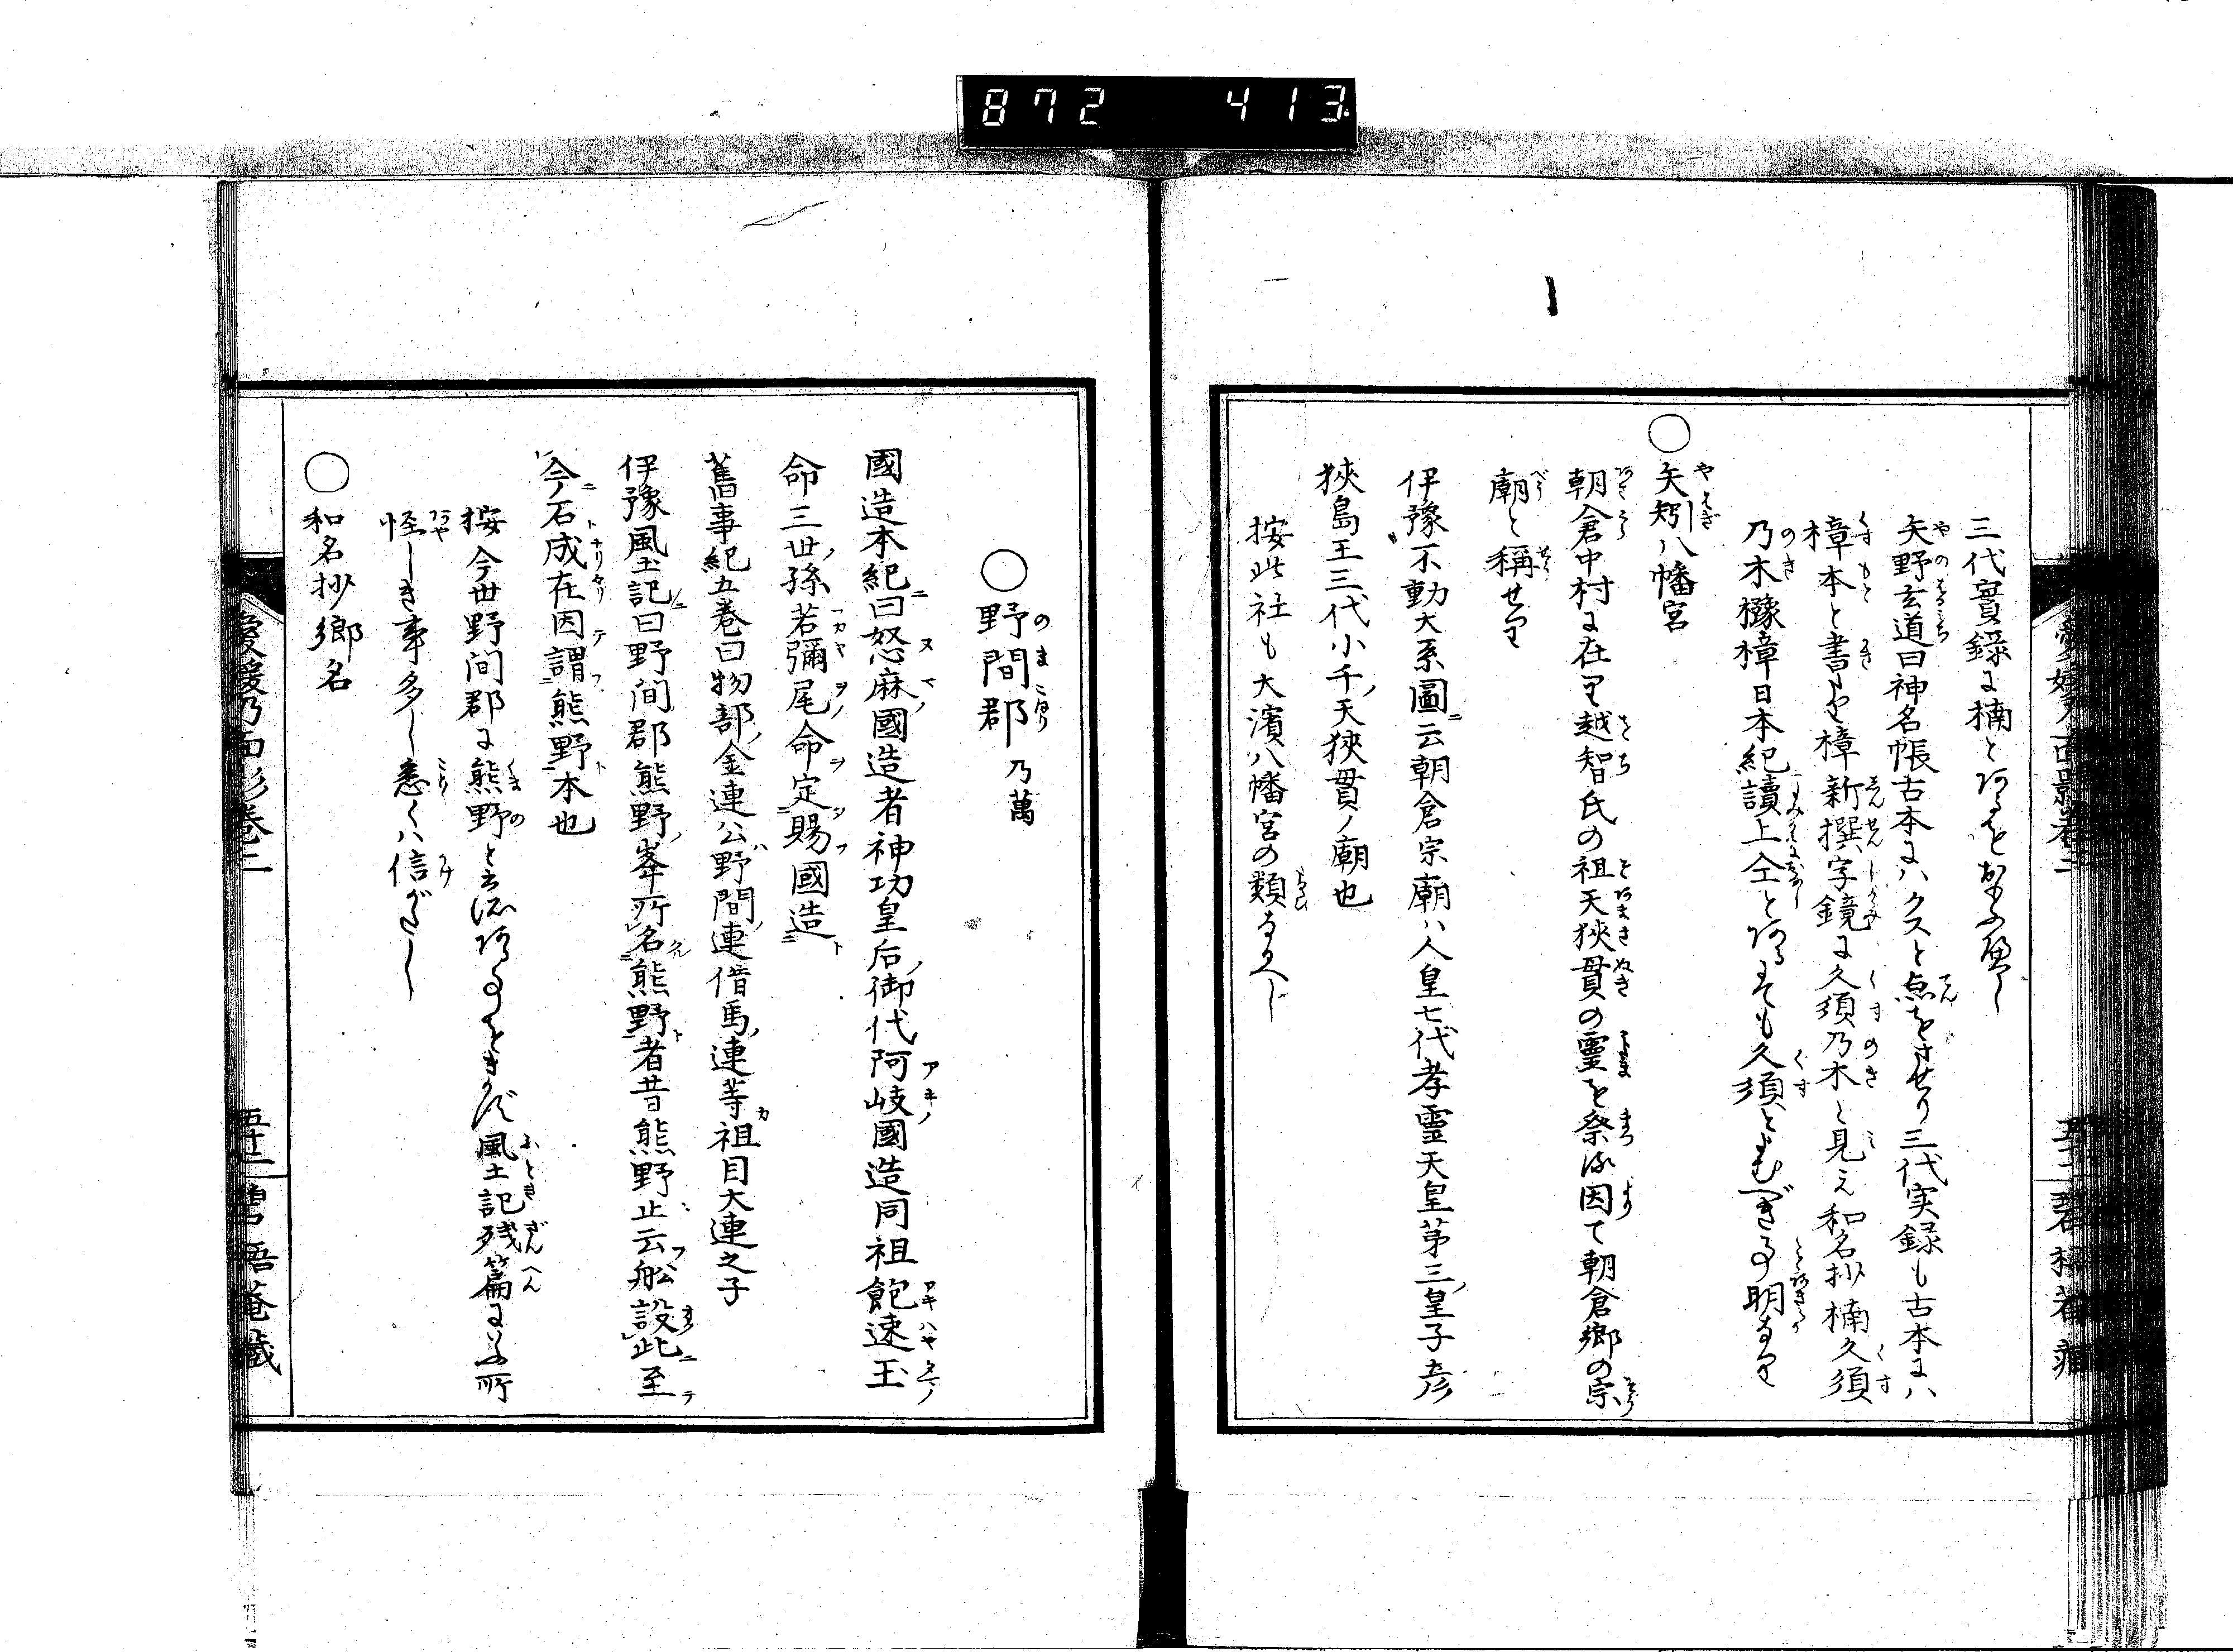 872 413
三代實録に楠とあるをおもふ便し
矢野玄道曰神名帳古本にハクスと点をさせり三代実録も古本にハ
樟本と書り樟新撰字鏡に久須乃木と見え和名抄楠久須
乃木櫲樟日本紀讀上仝とあるにても久須とよむべき事明なり
○矢矧八幡宮
朝倉中村に在り越智氏の祖天狹貫の靈を祭る因て朝倉郷の宗
廟と稱せり
伊豫不動大系圖ニ云朝倉宗廟ハ人皇七代孝霊天皇第三ノ皇子彦
狹島王三代小千ノ天狹貫ノ廟也
按此社も大濱八幡宮の類なるべし
○野間郡 乃萬
國造本紀ニ曰怒麻國造者神功皇后ノ御代阿岐國造同祖飽速玉
命三世ノ孫若彌尾命定賜國造
舊事紀五巻曰物部ノ金連公ハ野間連借馬ノ連等祖目大連之子
伊豫風土記ニ曰野间郡熊野ノ峯所名熊野者昔熊野止云舩設此至
今石成在因謂熊野本也
按今世野间郡に熊野と云所ある事をきかず風土記残篇にいふ所
怪しき事多し悉くハ信がたし
○和名抄郷名
愛媛乃面影巻二
五十二 碧梧菴藏